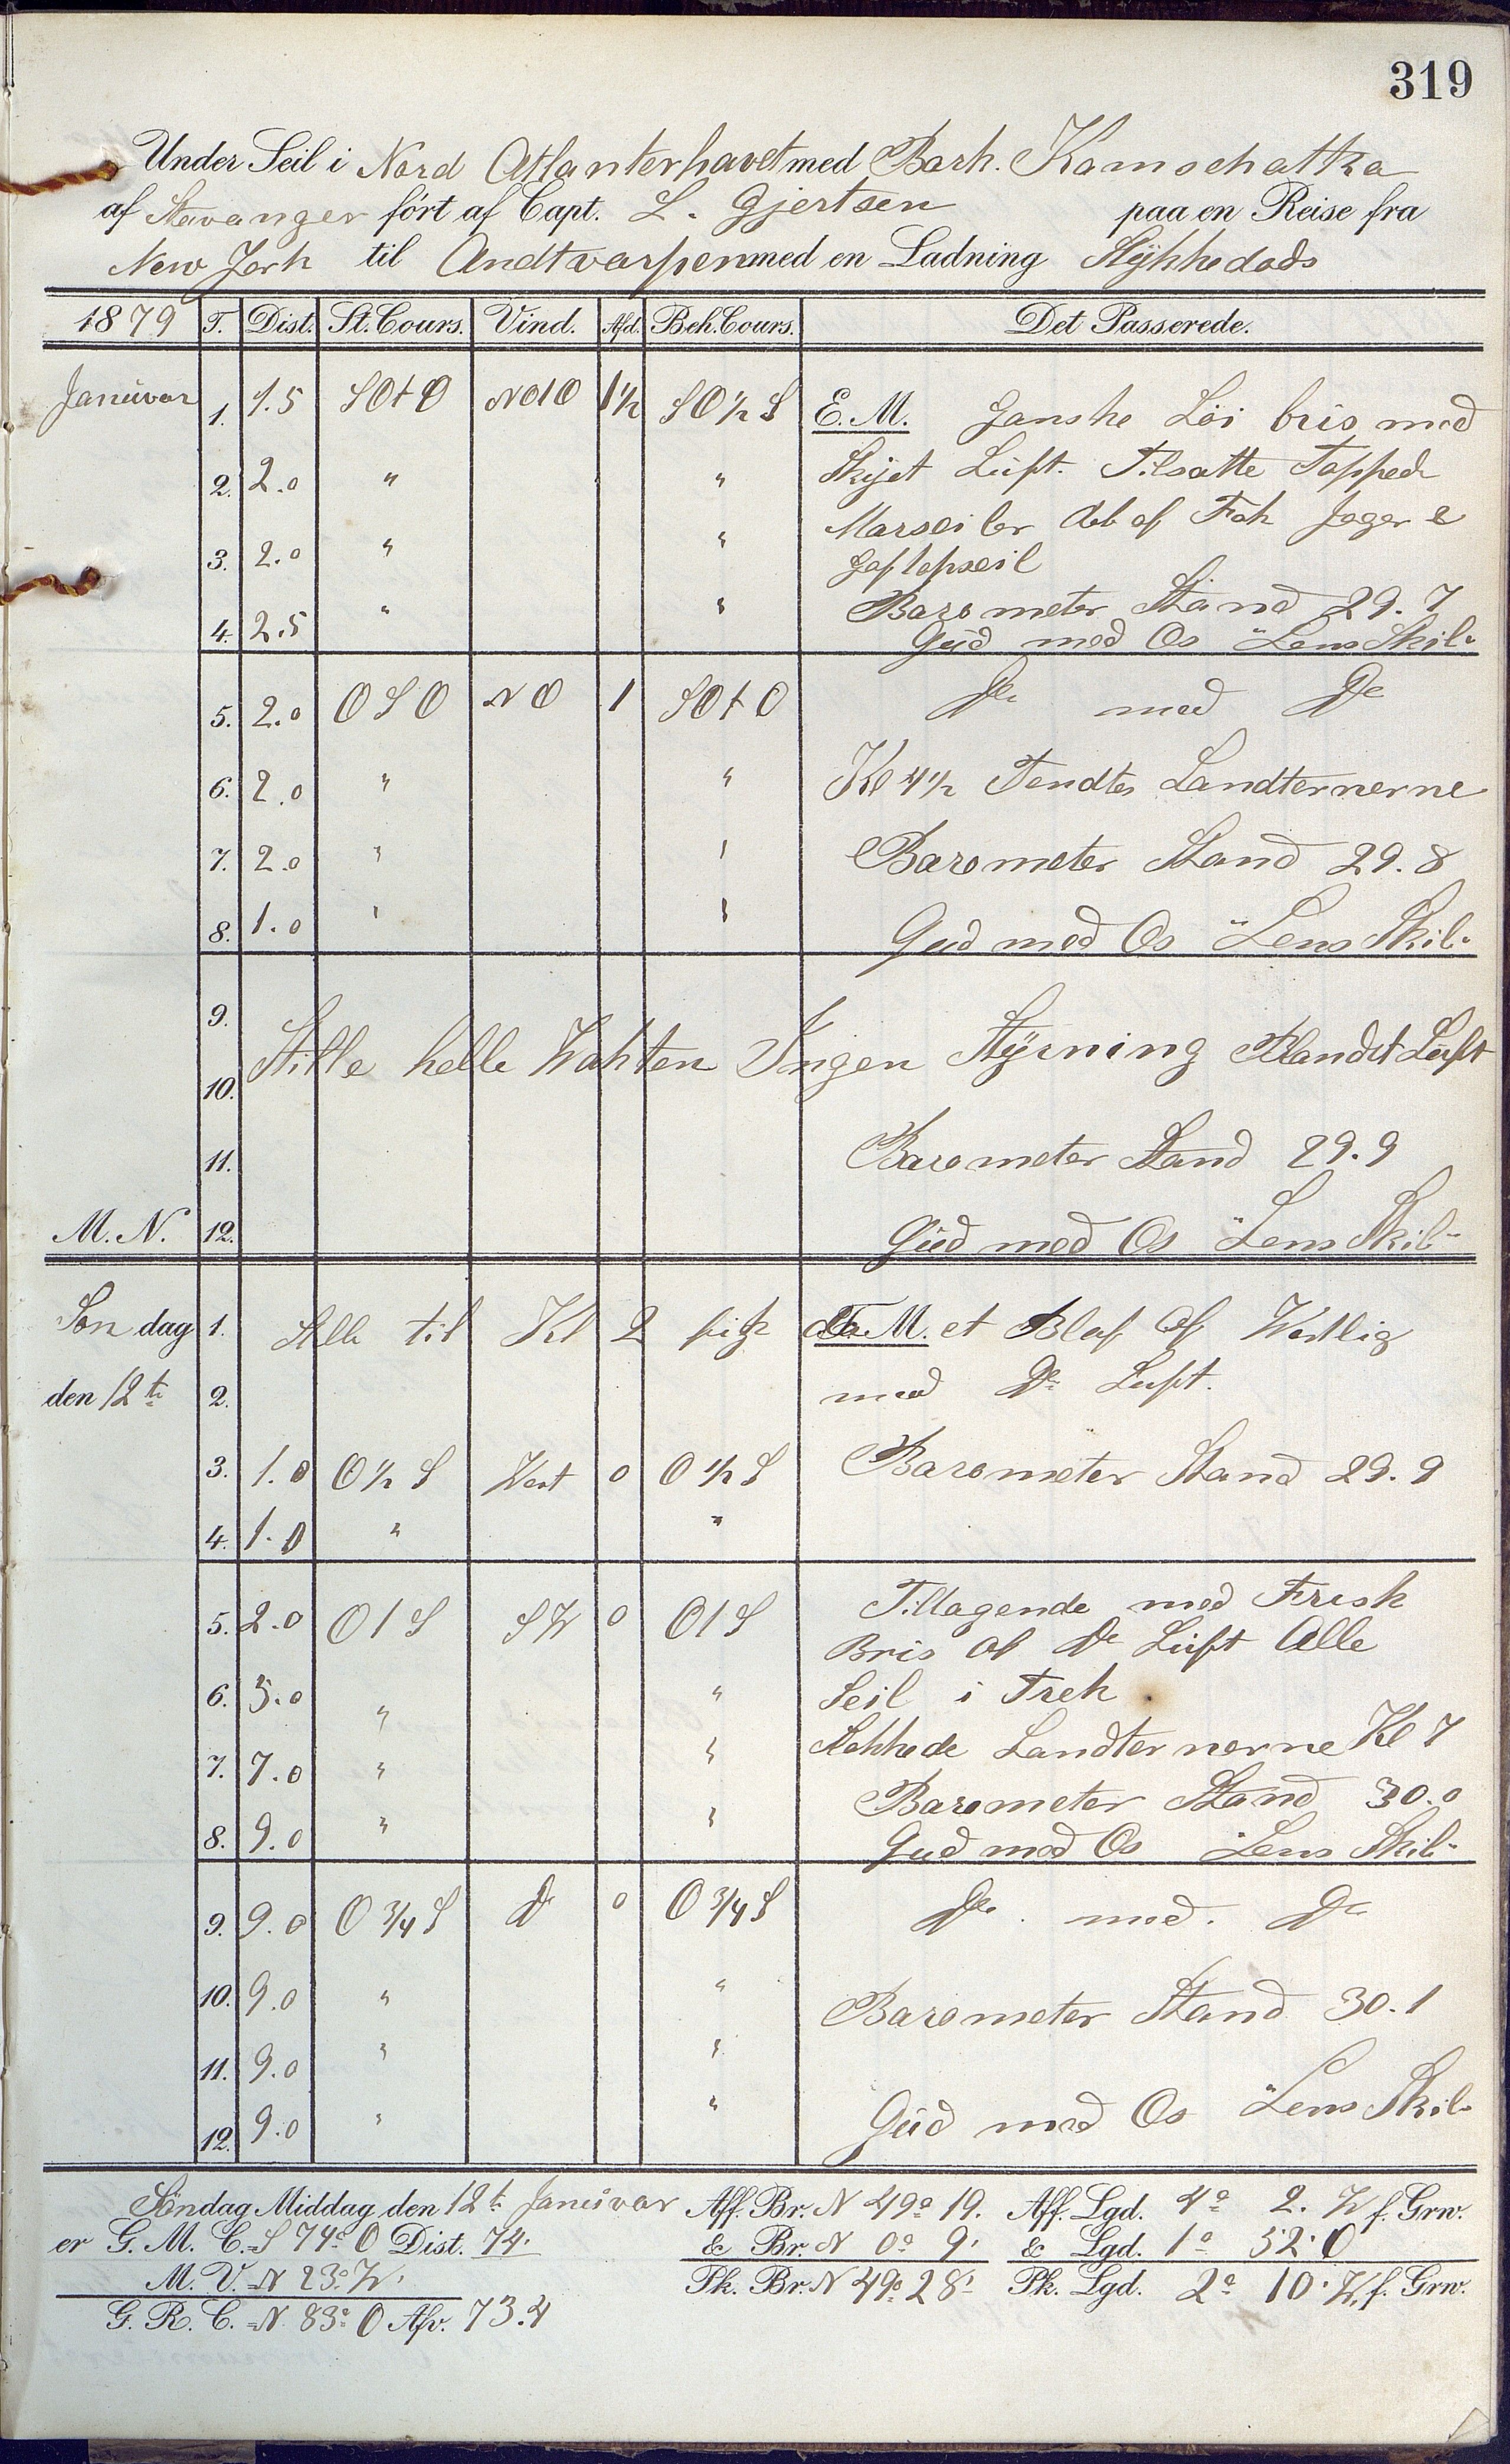 319
Under Seil i Nord Atlanterhavet med Bark. Kamschatka
af Stavanger ført af Capt. L. Gjertsen paa en Reise fra
New Jork til Andtvarpen med en Ladning Stÿkkedods
1879 T. Dist. St. Cours. Vind. Afd. Beh. Cours. Det Passerede.
Januvar 1. 1.5 SOtO NOtO 1½ SO½S E. M. Ganske Löi bris med
2. 2.0 " " Skÿet Luft. Tilsatte Toppede
Marseiler
3. 2.0 " " Gaftopseil
4. 2.5 " " Barometer Stand 29.7
Gud med Os Lens Skib.
5. 2.0 OSO NO 1 SOtO Do med Do
6. 2.0 " " Kl 4½ Tendtes Landternerne
7. 2.0 " " Barometer Stand 29.8
8. 1.0 " " Gud med Os Lens Skib.
9.
10. Stille helle Wakten Ingen Stÿrning Blandet Luft
11. Barometer Stand 29.9
M. N. 12. Gud med Os Lens Skib
Søndag 1. Stille til Kl 2 fik F. M. et Blaf Af Westlig
den 12te 2. med Do Luft.
3. 1.0 O½S West 0 O½S Barometer Stand 29.9
4. 1.0 " "
5. 2.0 OtS SW 0 OtS Tiltagende med Frisk
Bris Do Luft Alle
6. 5.0 " " Seil i Trek
7. 7.0 " " Slukkede Landternerne Kl 7
Barometer Stand 30.0
8. 9.0 " " Gud med Os Lens Skib
9. 9.0 O¾S Do 0 O¾S Do med. Do
10. 9.0 " " Barometer Stand 30.1
11. 9.0 " "
12. 9.0 " " Gud med Os Lens Skib
Søndag Middag den 12te Januvar Aff. Br. N 49° 19. Aff. Lgd. 4° 2. W f. Grw.
er G. M. C. S 74° O Dist. 74. & Br. N 0° 9' & Lgd. 1° 52' O
M. V. N 23° W. Pk. Br. N 49° 28' Pk. Lgd. 2° 10' W. f. Grw.
G. R. C. N 83° O Afv. 73.4